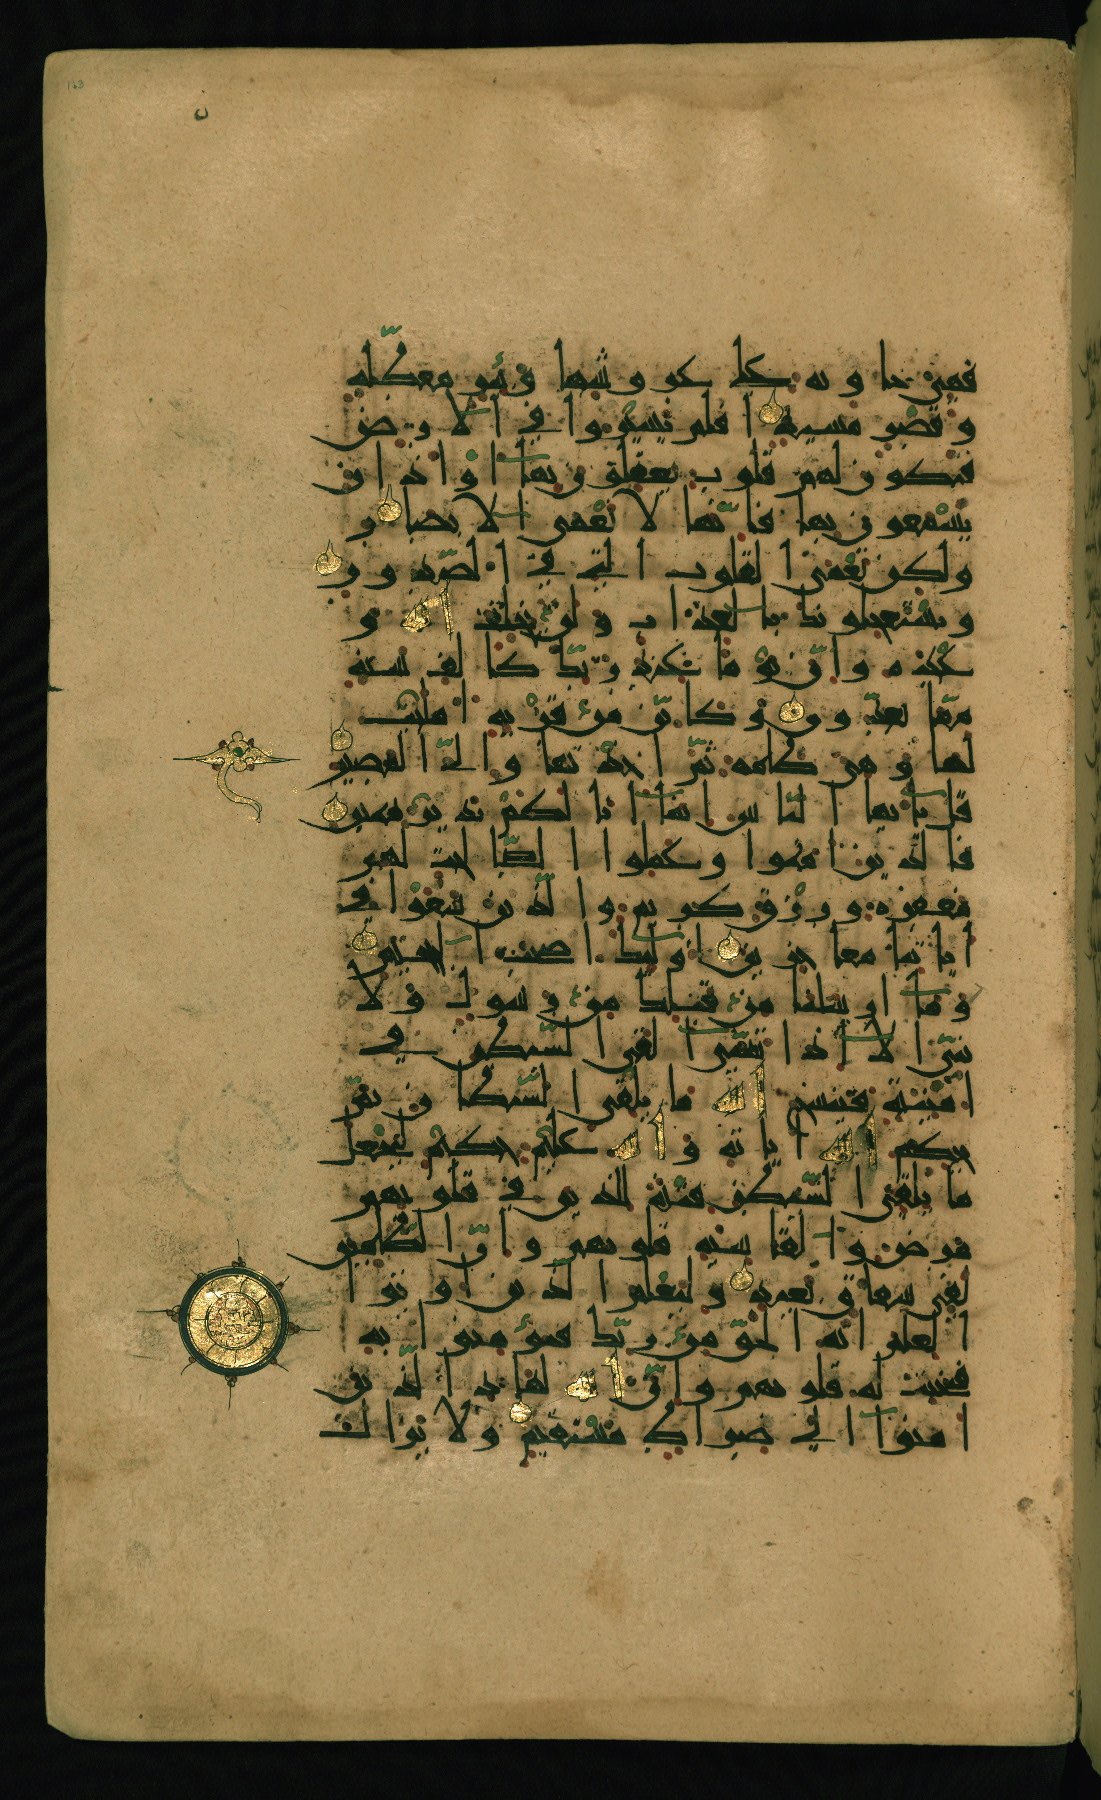 فهي خاوية على عروشها وبئر معطلة
وقصر مشيد افلم يسيروا في الارض
فتكون لهم قلوب يعقلون بها او اذان
يسمعون بها فانها لا تعمى الابصار
ولكن تعمى القلوب التي في الصدور
ويستعجلونك بالعذاب ولن يخلف الله و
عده وان يوما عند ربك كالف سنة
مما تعدون وكاين من قرية امليت
لها وهي ظالمة ثم اخذتها والي المصير
قل يايها الناس انما انا لكم نذير مبين
فالذين امنوا وعملوا الصالحات لهم
مغفرة ورزق كريم والذين سعوا في
اياتنا معاجزين اوليك اصحب الجحيم
وما ارسلنا من قبلك من رسول ولا
نبي الا اذا تمنى القى الشيطن في
امنيته فينسخ الله ما يلقي الشيطان ثم
يحكم الله اياته والله عليم حكيم ليجعل
ما يلقي الشيطن فتنة للذين في قلوبهم
مرض والقاسية قلوبهم وان الظلمين
لفي شقاق بعيد وليعلم الذين اوتوا
العلم انه الحق من ربك فيؤمنوا به
فتخبت له قلوبهم وان الله لهاد الذين
امنوا الى صراط مستقيم ولا يزال